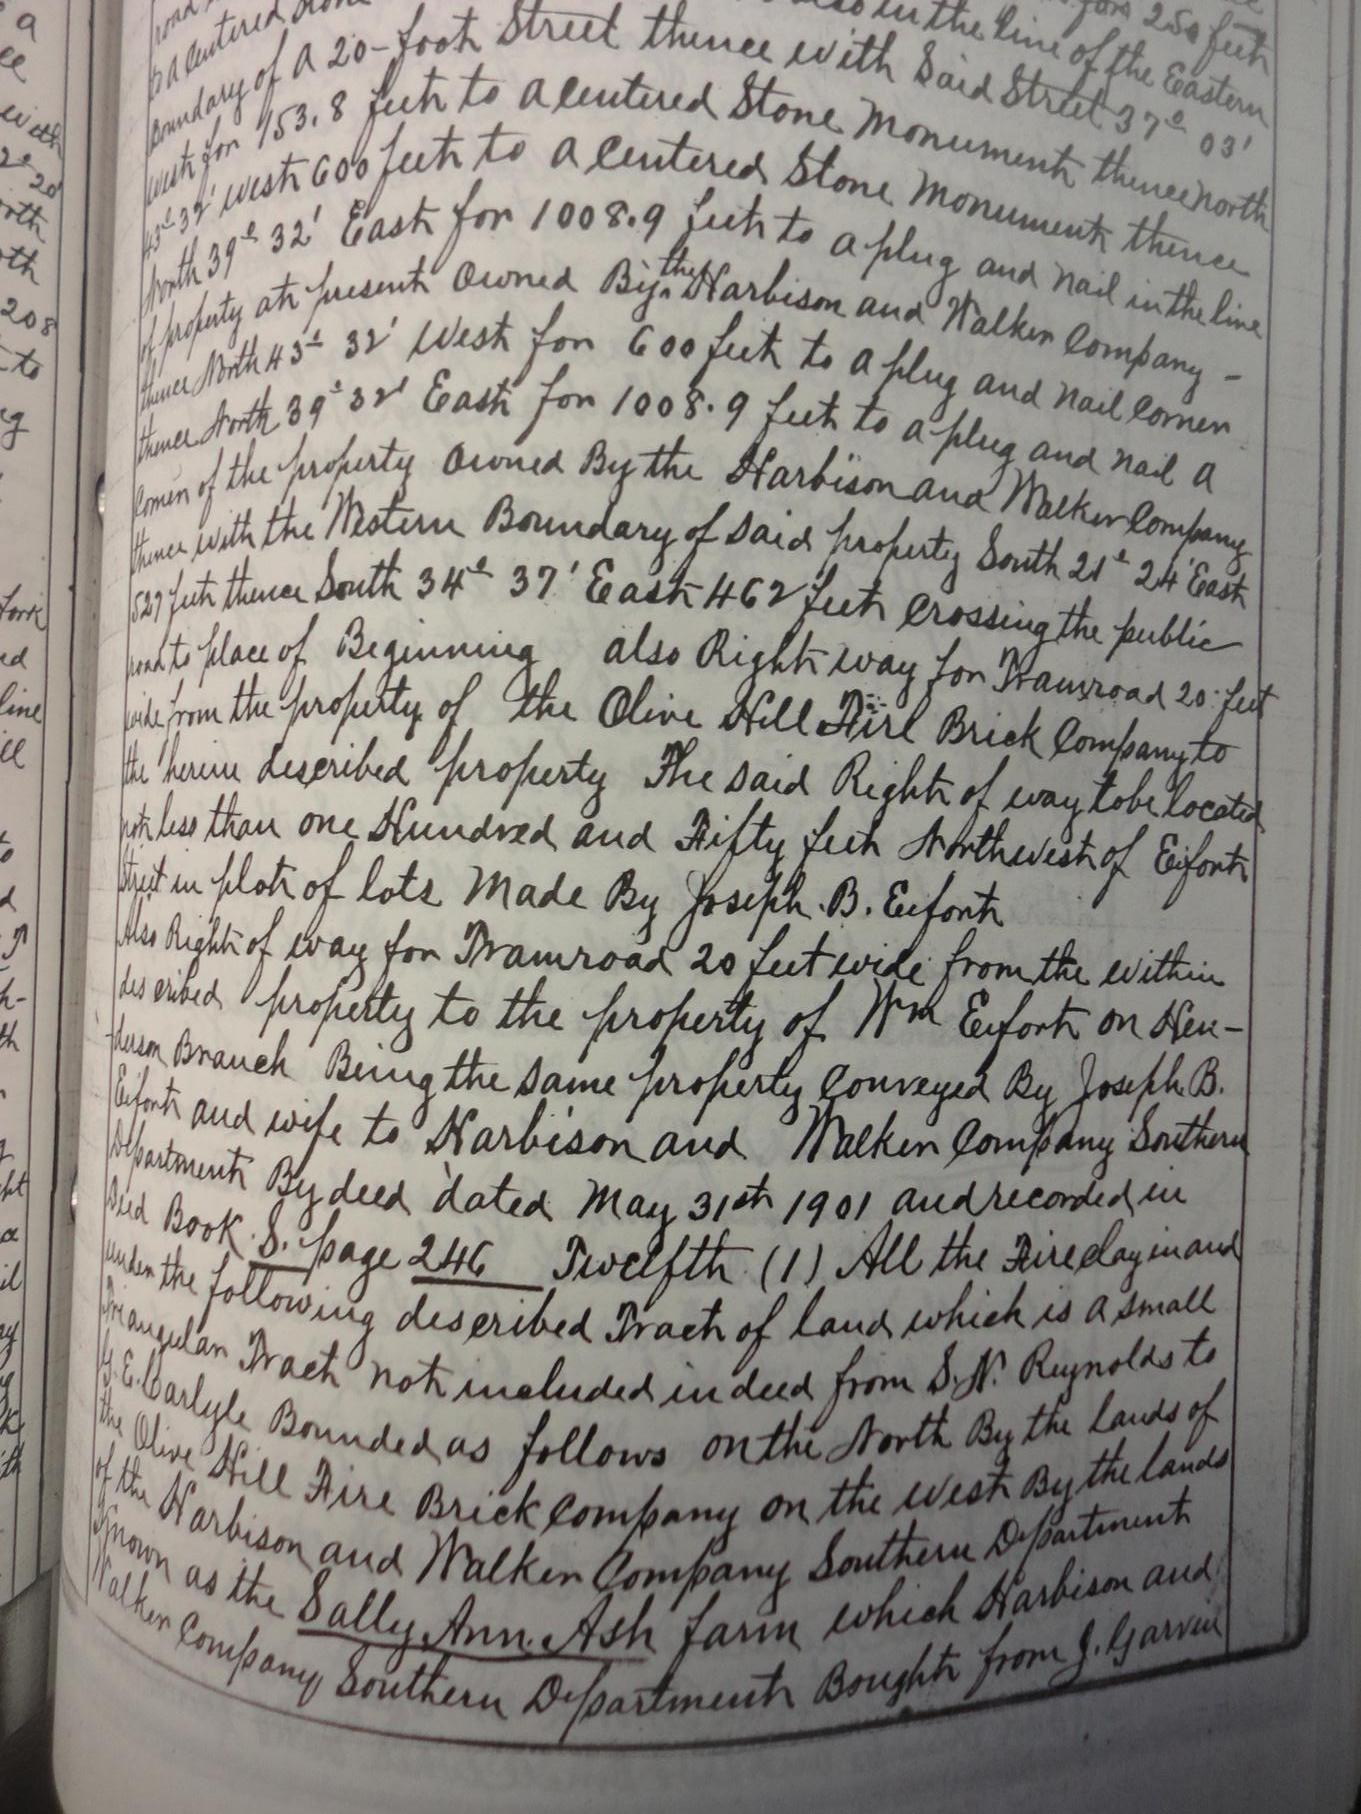 for 250 feet
to a centered Stone also in the line of the Eastern
Boundary of A 20-foot Street thence with Said Street 37° 03'
West for 153.8 feet to a centered Stone Monument thence North
43° 32' West 600 feet to a centered Stone Monument thence
North 39° 32' East for 1008.9 feet to a plug and nail in the line
of property at present owned By the Harbison and Walker Company –
thence North 43° 32' West for 600 feet to a plug and nail Corner
thence North 39° 32' East for 1008.9 feet to a plug and nail a
Corner of the property owned By the Harbison and Walker Company
thence with the Western Boundary of Said property South 21° 24' East
527 feet thence South 34° 37' East 462 feet Crossing the public
road to place of Beginning also Right way for Tramroad 20 feet
wide from the property of the Olive Hill Fire Brick Company to
the herein described property The said Right of way to be located
not less than one Hundred and Fifty feet Northwest of Eifort
Street in plot of lots Made By Joseph B. Eifort
Also Right of way for Tramroad 20 feet wide from the within
described property to the property of Wm Eifort on Hen-
derson Branch Being the same property Conveyed By Joseph B.
Eifort and wife to Harbison and Walker Company Southern
Department By deed dated May 31st 1901 and recorded in
Deed Book S. page 246 Twelfth (1) All the Fire clay in and
under the following described Tract of land which is a small
Triangular Tract not included in deed from S. N. Reynolds to
G. E. Carlyle Bounded as follows on the North By the lands of
the Olive Hill Fire Brick Company on the west By the lands
of the Harbison and Walker Company Southern Department
Known as the Sally Ann Ash farm which Harbison and
Walker Company Southern Department Bought from J. Garvin